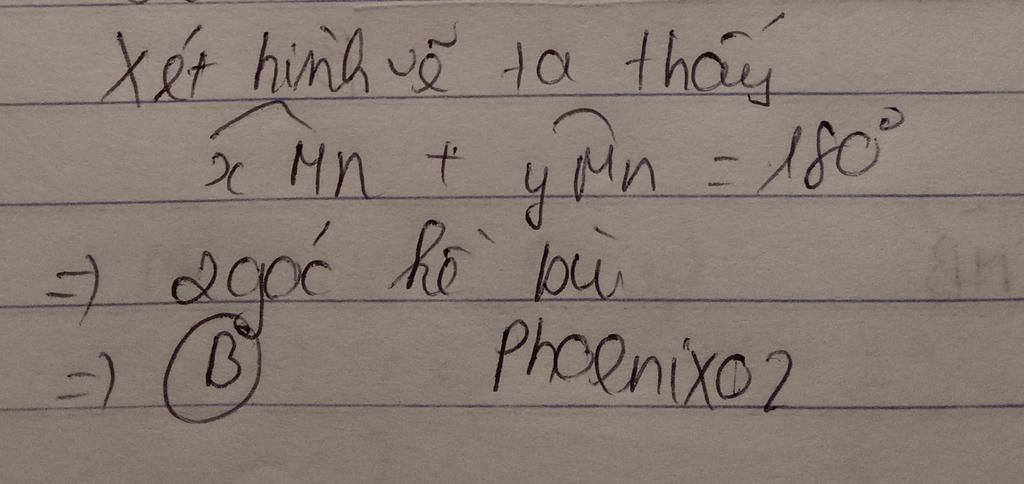 Xét hình vẽ ta thấy
xMn + yMn = 180°
=> 2 góc kề bù
=> B Phoenix02